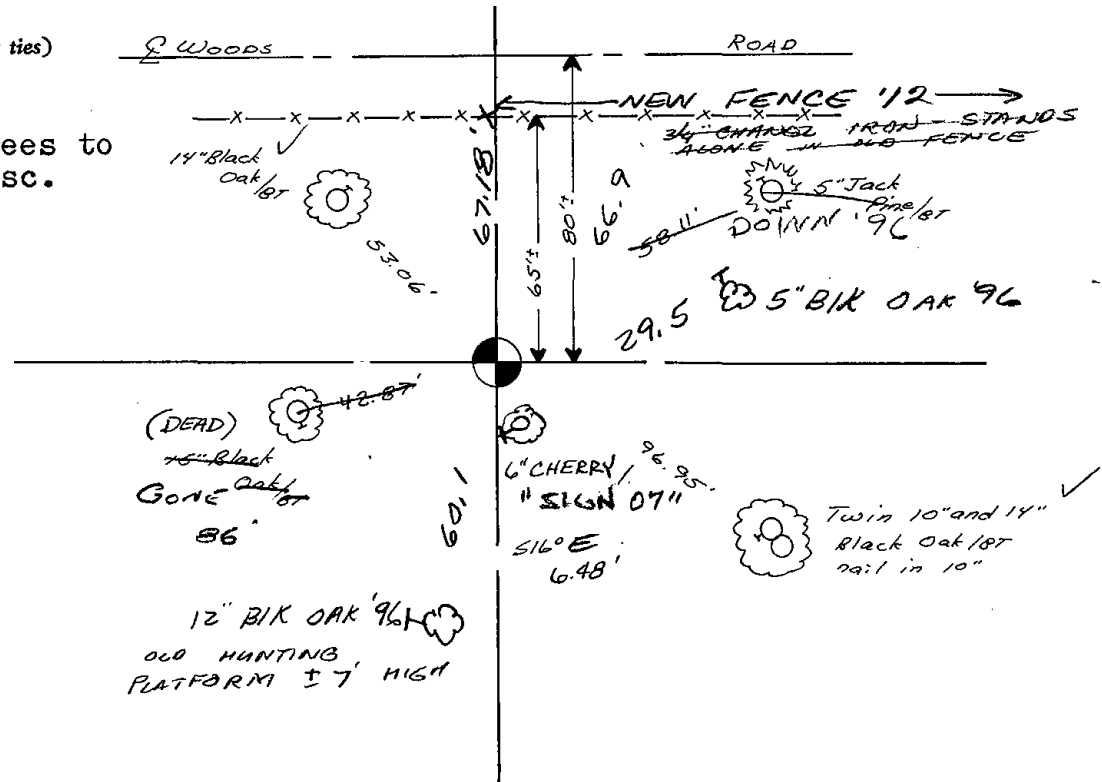 ties)
℄ WOODS ROAD
NEW FENCE '12
3/4" CHANEL IRON - STANDS
ALONE IN OLD FENCE
ees to
sc.
14" Black
Oak/BT
53.06'
67.18'
65'±
80'±
66.9
58.11'
5" Jack
Pine/BT
DOWN '96
29.5
5" BlK OAK '96
42.87'
(DEAD)
Black
Oak/BT
GONE
86
60.1
6" CHERRY/
"SIGN 07"
S16° E
6.48'
96.95'
Twin 10" and 14"
Black Oak/BT
nail in 10"
12" BlK OAK '96
OLD HUNTING
PLATFORM ± 7' HIGH